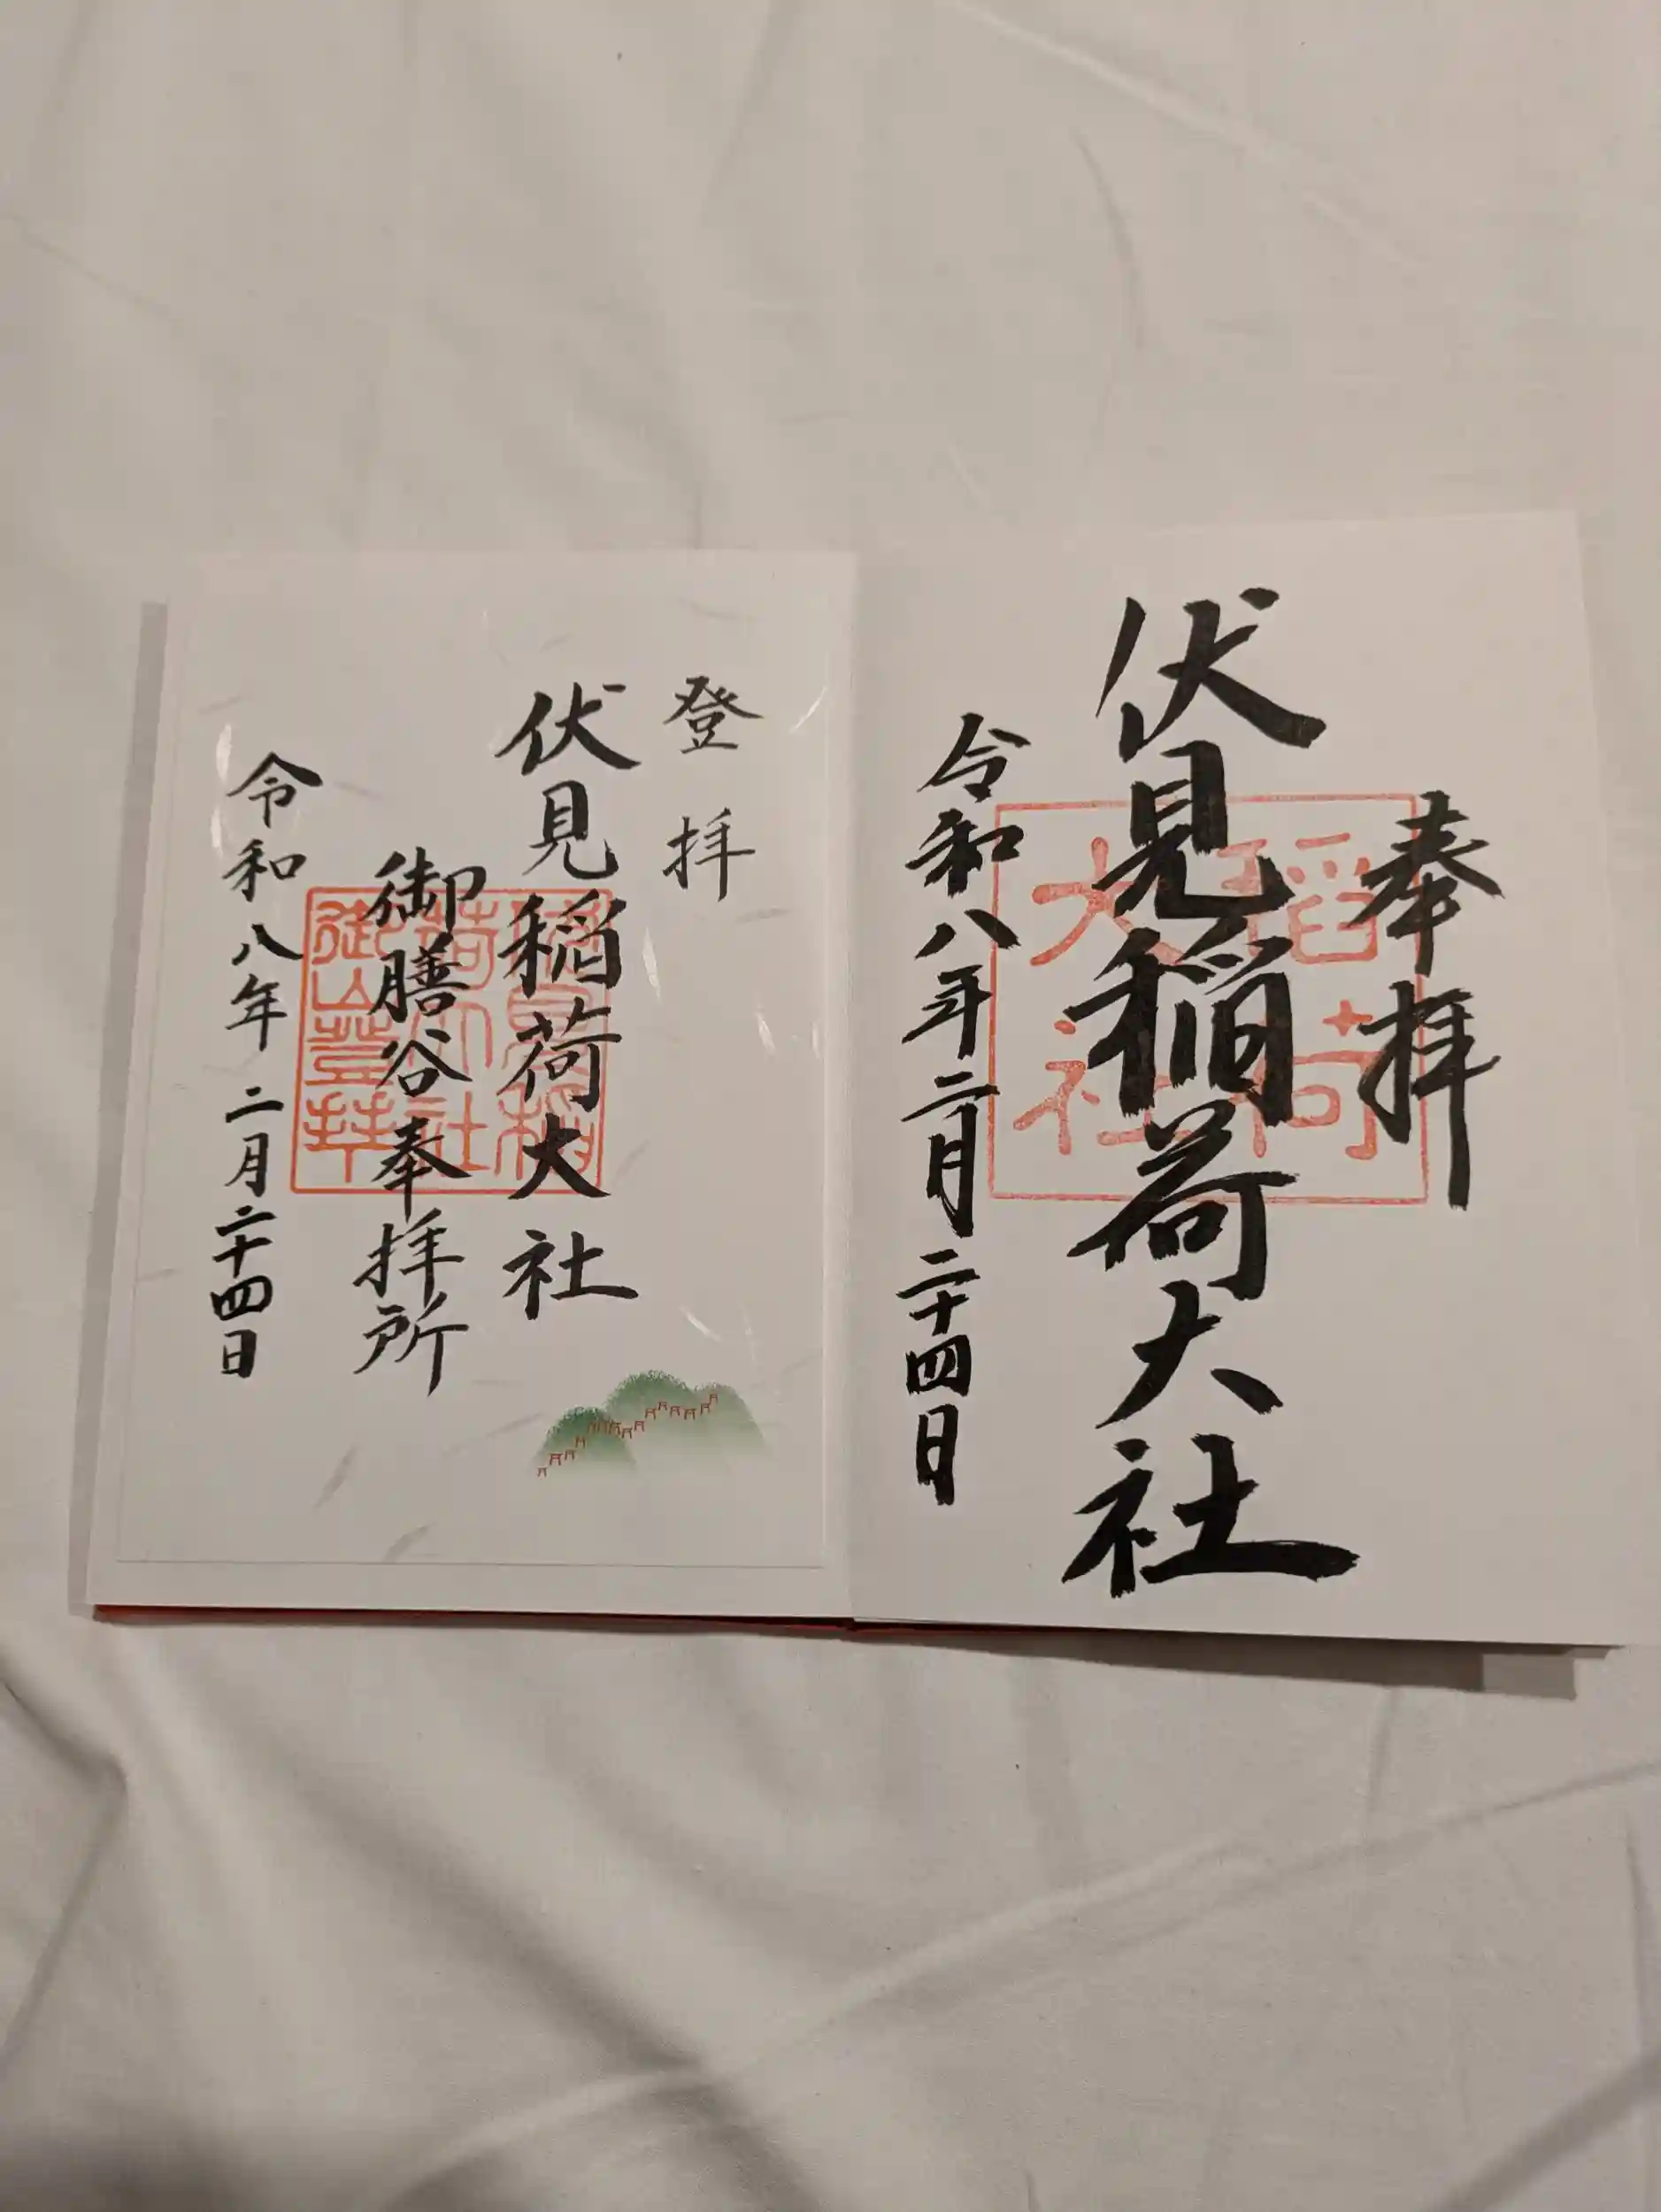 奉拝
伏見稲荷大社
稲荷
大社
令和八年二月二十四日
登拝
伏見稲荷大社
御膳谷奉拝所
御山登拝
令和八年二月二十四日